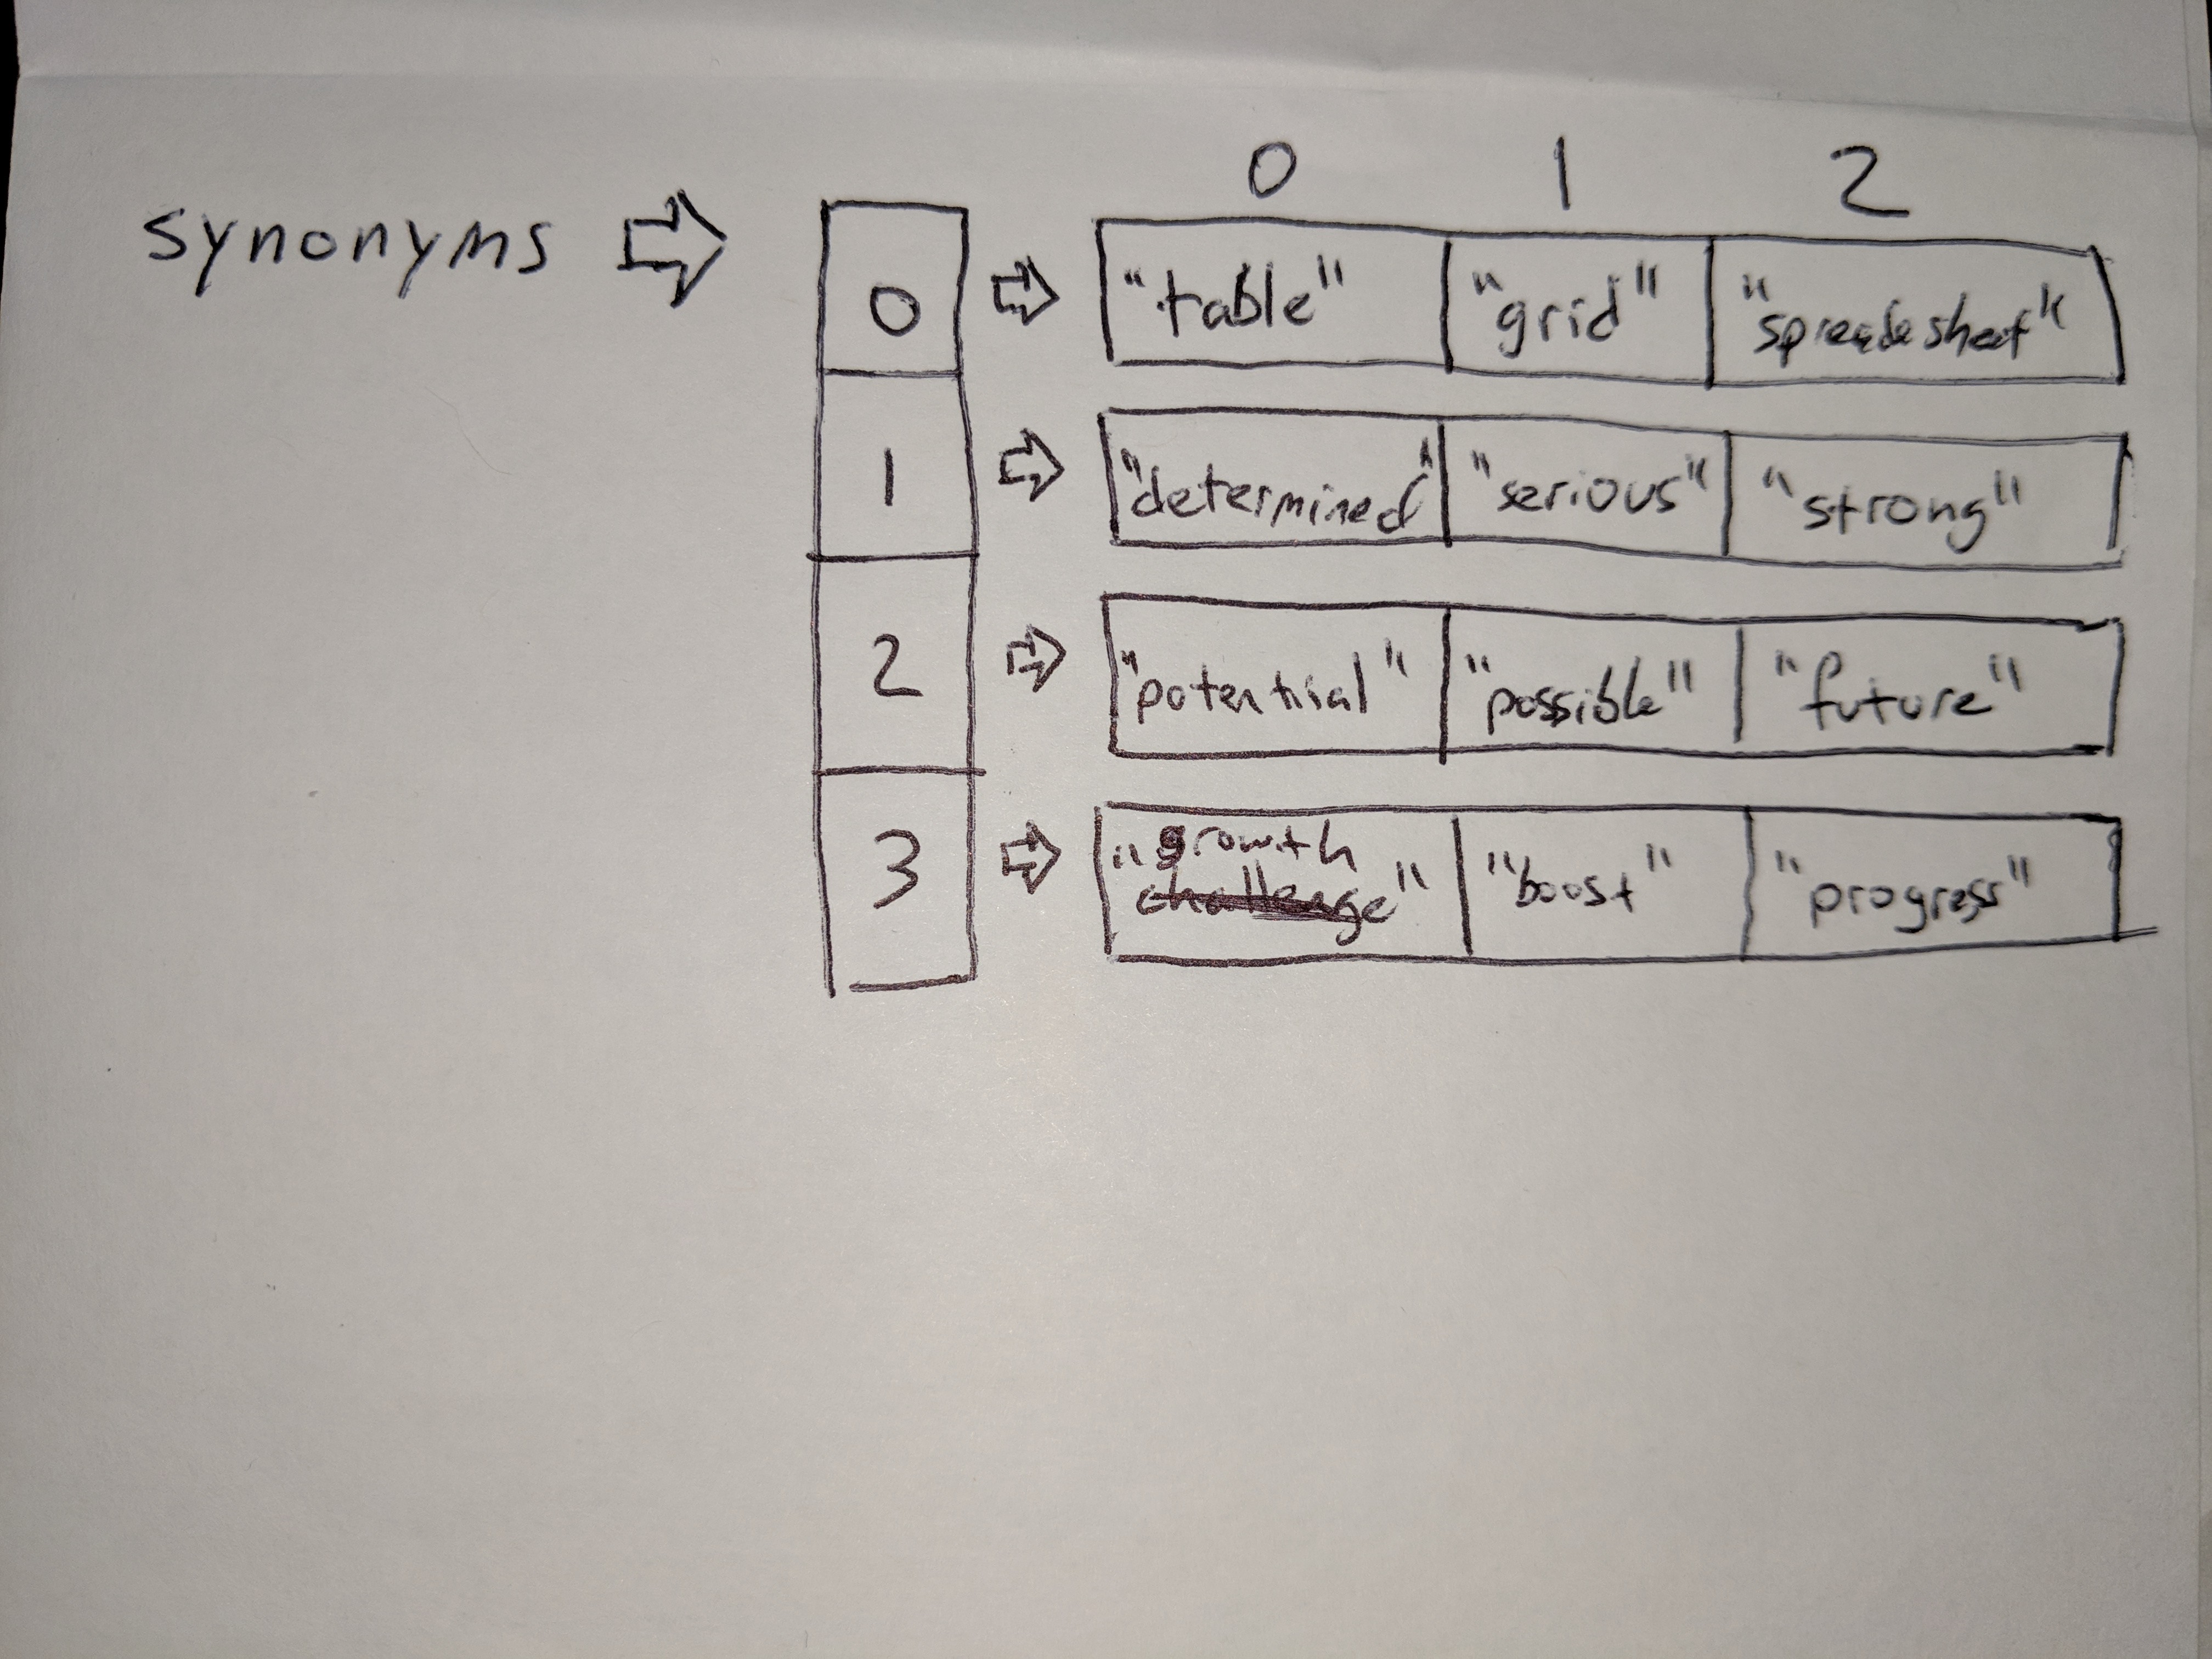 0 1 2
synonyms 0 "table" "grid" "spreadsheet"
1 "determined" "serious" "strong"
2 "potential" "possible" "future"
3 "growth challenge" "boost" "progress"